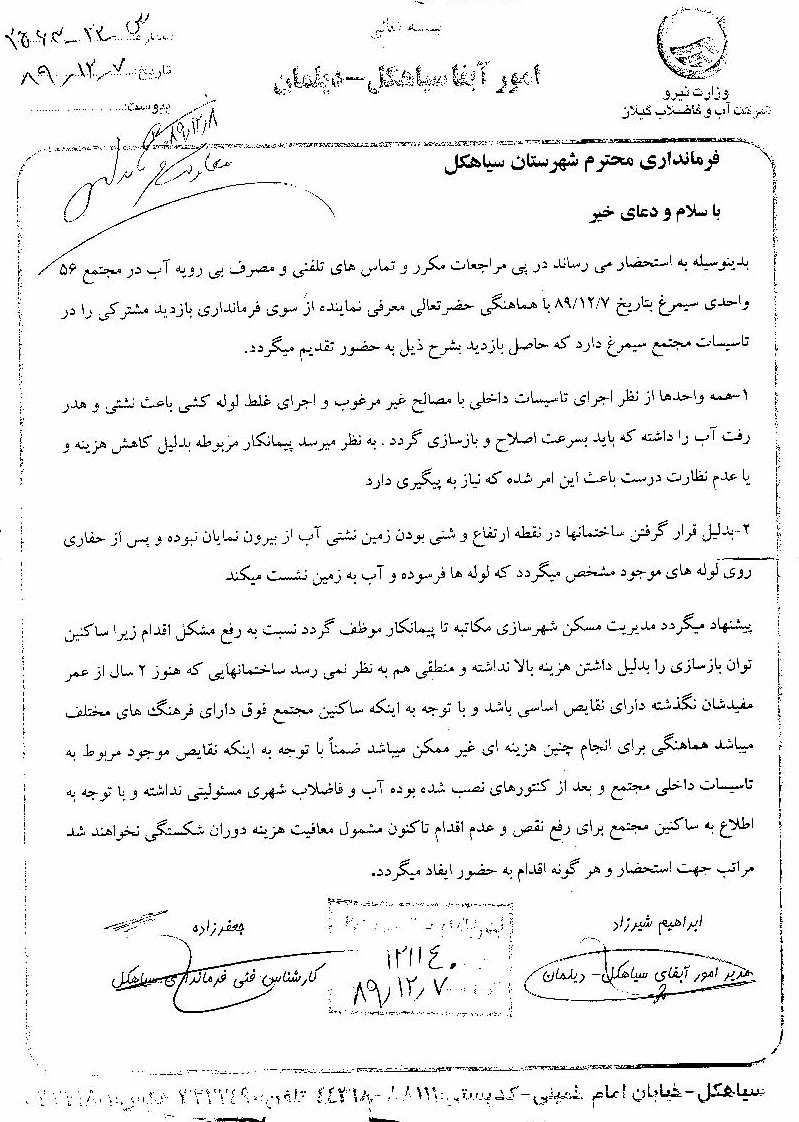 بسمه تعالی
امور آبفا سیاهکل-دیلمان
وزارت نیرو
شرکت آب و فاضلاب گیلان
تاریخ: ۸۹/۱۲/۷
پیوست:
۸۹/۱۲/۸
فرمانداری محترم شهرستان سیاهکل
با سلام و دعای خیر
بدینوسیله به استحضار می رساند در پی مراجعات مکرر و تماس های تلفنی و مصرف بی رویه آب در مجتمع ۵۶
واحدی سیمرغ بتاریخ ۸۹/۱۲/۷ با هماهنگی حضرتعالی معرفی نماینده از سوی فرمانداری بازدید مشترکی را در
تاسیسات مجتمع سیمرغ دارد که حاصل بازدید بشرح ذیل به حضور تقدیم میگردد.
۱-همه واحدها از نظر اجرای تاسیسات داخلی با مصالح غیر مرغوب و اجرای غلط لوله کشی باعث نشتی و هدر
رفت آب را داشته که باید بسرعت اصلاح و بازسازی گردد . به نظر میرسد پیمانکار مربوطه بدلیل کاهش هزینه و
یا عدم نظارت درست باعث این امر شده که نیاز به پیگیری دارد
۲-بدلیل قرار گرفتن ساختمانها در نقطه ارتفاع و شنی بودن زمین نشتی آب از بیرون نمایان نبوده و پس از حفاری
روی لوله های موجود مشخص میگردد که لوله ها فرسوده و آب به زمین نشست میکند
پیشنهاد میگردد مدیریت مسکن شهرسازی مکاتبه تا پیمانکار موظف گردد نسبت به رفع مشکل اقدام زیرا ساکنین
توان بازسازی را بدلیل داشتن هزینه بالا نداشته و منطقی هم به نظر نمی رسد ساختمانهایی که هنوز ۲ سال از عمر
مفیدشان نگذشته دارای نقایص اساسی باشد و با توجه به اینکه ساکنین مجتمع فوق دارای فرهنگ های مختلف
میباشد هماهنگی برای انجام چنین هزینه ای غیر ممکن میباشد ضمناً با توجه به اینکه نقایص موجود مربوط به
تاسیسات داخلی مجتمع و بعد از کنتورهای نصب شده بوده آب و فاضلاب شهری مسئولیتی نداشته و با توجه به
اطلاع به ساکنین مجتمع برای رفع نقص و عدم اقدام تاکنون مشمول معافیت هزینه دوران شکستگی نخواهند شد
مراتب جهت استحضار و هر گونه اقدام به حضور ایفاد میگردد.
ابراهیم شیرزاد
مدیر امور آبفای سیاهکل- دیلمان
جعفرزاده
کارشناس فنی فرمانداری سیاهکل
۱۲۱۱۴۰
۸۹/۱۲/۷
سیاهکل-خیابان امام خمینی-کدپستی